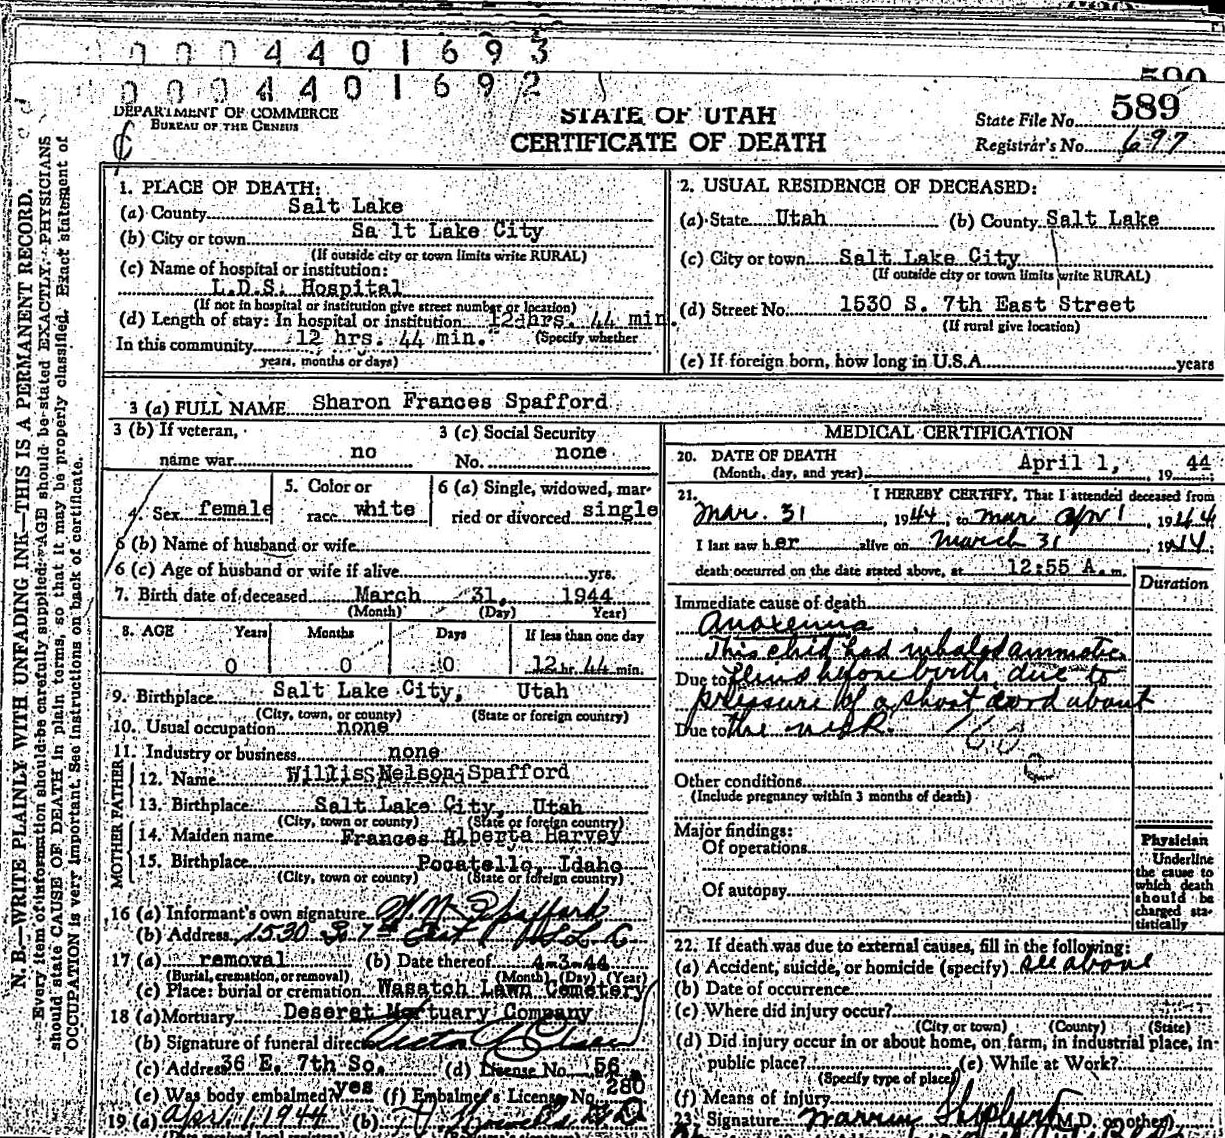 0 0 0 4 4 0 1 6 9 3
0 0 0 4 4 0 1 6 9 2
590
DEPARTMENT OF COMMERCE
BUREAU OF THE CENSUS
STATE OF UTAH
CERTIFICATE OF DEATH
State File No. 589
Registrar's No. 697
N. B.—WRITE PLAINLY WITH UNFADING INK—THIS IS A PERMANENT RECORD.
Every item of information should be carefully supplied. AGE should be stated EXACTLY. PHYSICIANS
should state CAUSE OF DEATH in plain terms, so that it may be properly classified. Exact statement of
OCCUPATION is very important. See instructions on back of certificate.
1. PLACE OF DEATH:
(a) County Salt Lake
(b) City or town Sa lt Lake City
(If outside city or town limits write RURAL)
(c) Name of hospital or institution:
L.D.S. Hospital
(If not in hospital or institution give street number or location)
(d) Length of stay: In hospital or institution 12 hrs. 44 min.
In this community 12 hrs. 44 min. (Specify whether
years, months or days)
2. USUAL RESIDENCE OF DECEASED:
(a) State Utah (b) County Salt Lake
(c) City or town Salt Lake City
(If outside city or town limits write RURAL)
(d) Street No. 1530 S. 7th East Street
(If rural give location)
(e) If foreign born, how long in U.S.A. years
3 (a) FULL NAME Sharon Frances Spafford
3 (b) If veteran,
name war no
3 (c) Social Security
No. none
4. Sex female
5. Color or
race white
6 (a) Single, widowed, mar-
ried or divorced single
6 (b) Name of husband or wife
6 (c) Age of husband or wife if alive yrs.
7. Birth date of deceased March 31, 1944
(Month) (Day) Year)
8. AGE Years Months Days If less than one day
0 0 0 12 hr. 44 min.
9. Birthplace Salt Lake City, Utah
(City, town, or county) (State or foreign country)
10. Usual occupation none
11. Industry or business none
FATHER
12. Name Willis Nelson Spafford
13. Birthplace Salt Lake City, Utah
(City, town or county) (State or foreign country)
MOTHER
14. Maiden name Frances Alberta Harvey
15. Birthplace Pocatello, Idaho
(City, town or county) (State or foreign country)
16 (a) Informant's own signature W. N. Spafford
(b) Address 1530 So 7th East S L C
17 (a) removal (b) Date thereof 4-3-44
(Burial, cremation, or removal) (Month) (Day) (Year)
(c) Place: burial or cremation Wasatch Lawn Cemetery
18 (a) Mortuary Deseret Mortuary Company
(b) Signature of funeral director
(c) Address 36 E. 7th So. (d) License No. 56
(e) Was body embalmed? yes (f) Embalmer's License No. 280
19 (a) Apr. 1, 1944 (b)
(Date received local registrar)
MEDICAL CERTIFICATION
20. DATE OF DEATH
(Month, day, and year) April 1, 19 44
21. I HEREBY CERTIFY, That I attended deceased from
Mar. 31, 1944, to Mar Apr 1, 1944
I last saw her alive on March 31, 1944;
death occurred on the date stated above, at 12:55 A. m.
Duration
Immediate cause of death
Anoxemia
This child had inhaled amniotic
Due to fluid before birth, due to
pressure of a short cord about
Due to the neck. 160
c
Other conditions
(Include pregnancy within 3 months of death)
Major findings:
Of operations
Of autopsy
Physician
Underline
the cause to
which death
should be
charged sta-
tistically
22. If death was due to external causes, fill in the following:
(a) Accident, suicide, or homicide (specify) see above
(b) Date of occurrence
(c) Where did injury occur?
(City or town) (County) (State)
(d) Did injury occur in or about home, on farm, in industrial place, in
public place? (e) While at Work?
(Specify type of place)
(f) Means of injury
23. Signature Warren Shepherd (M.D. or other)